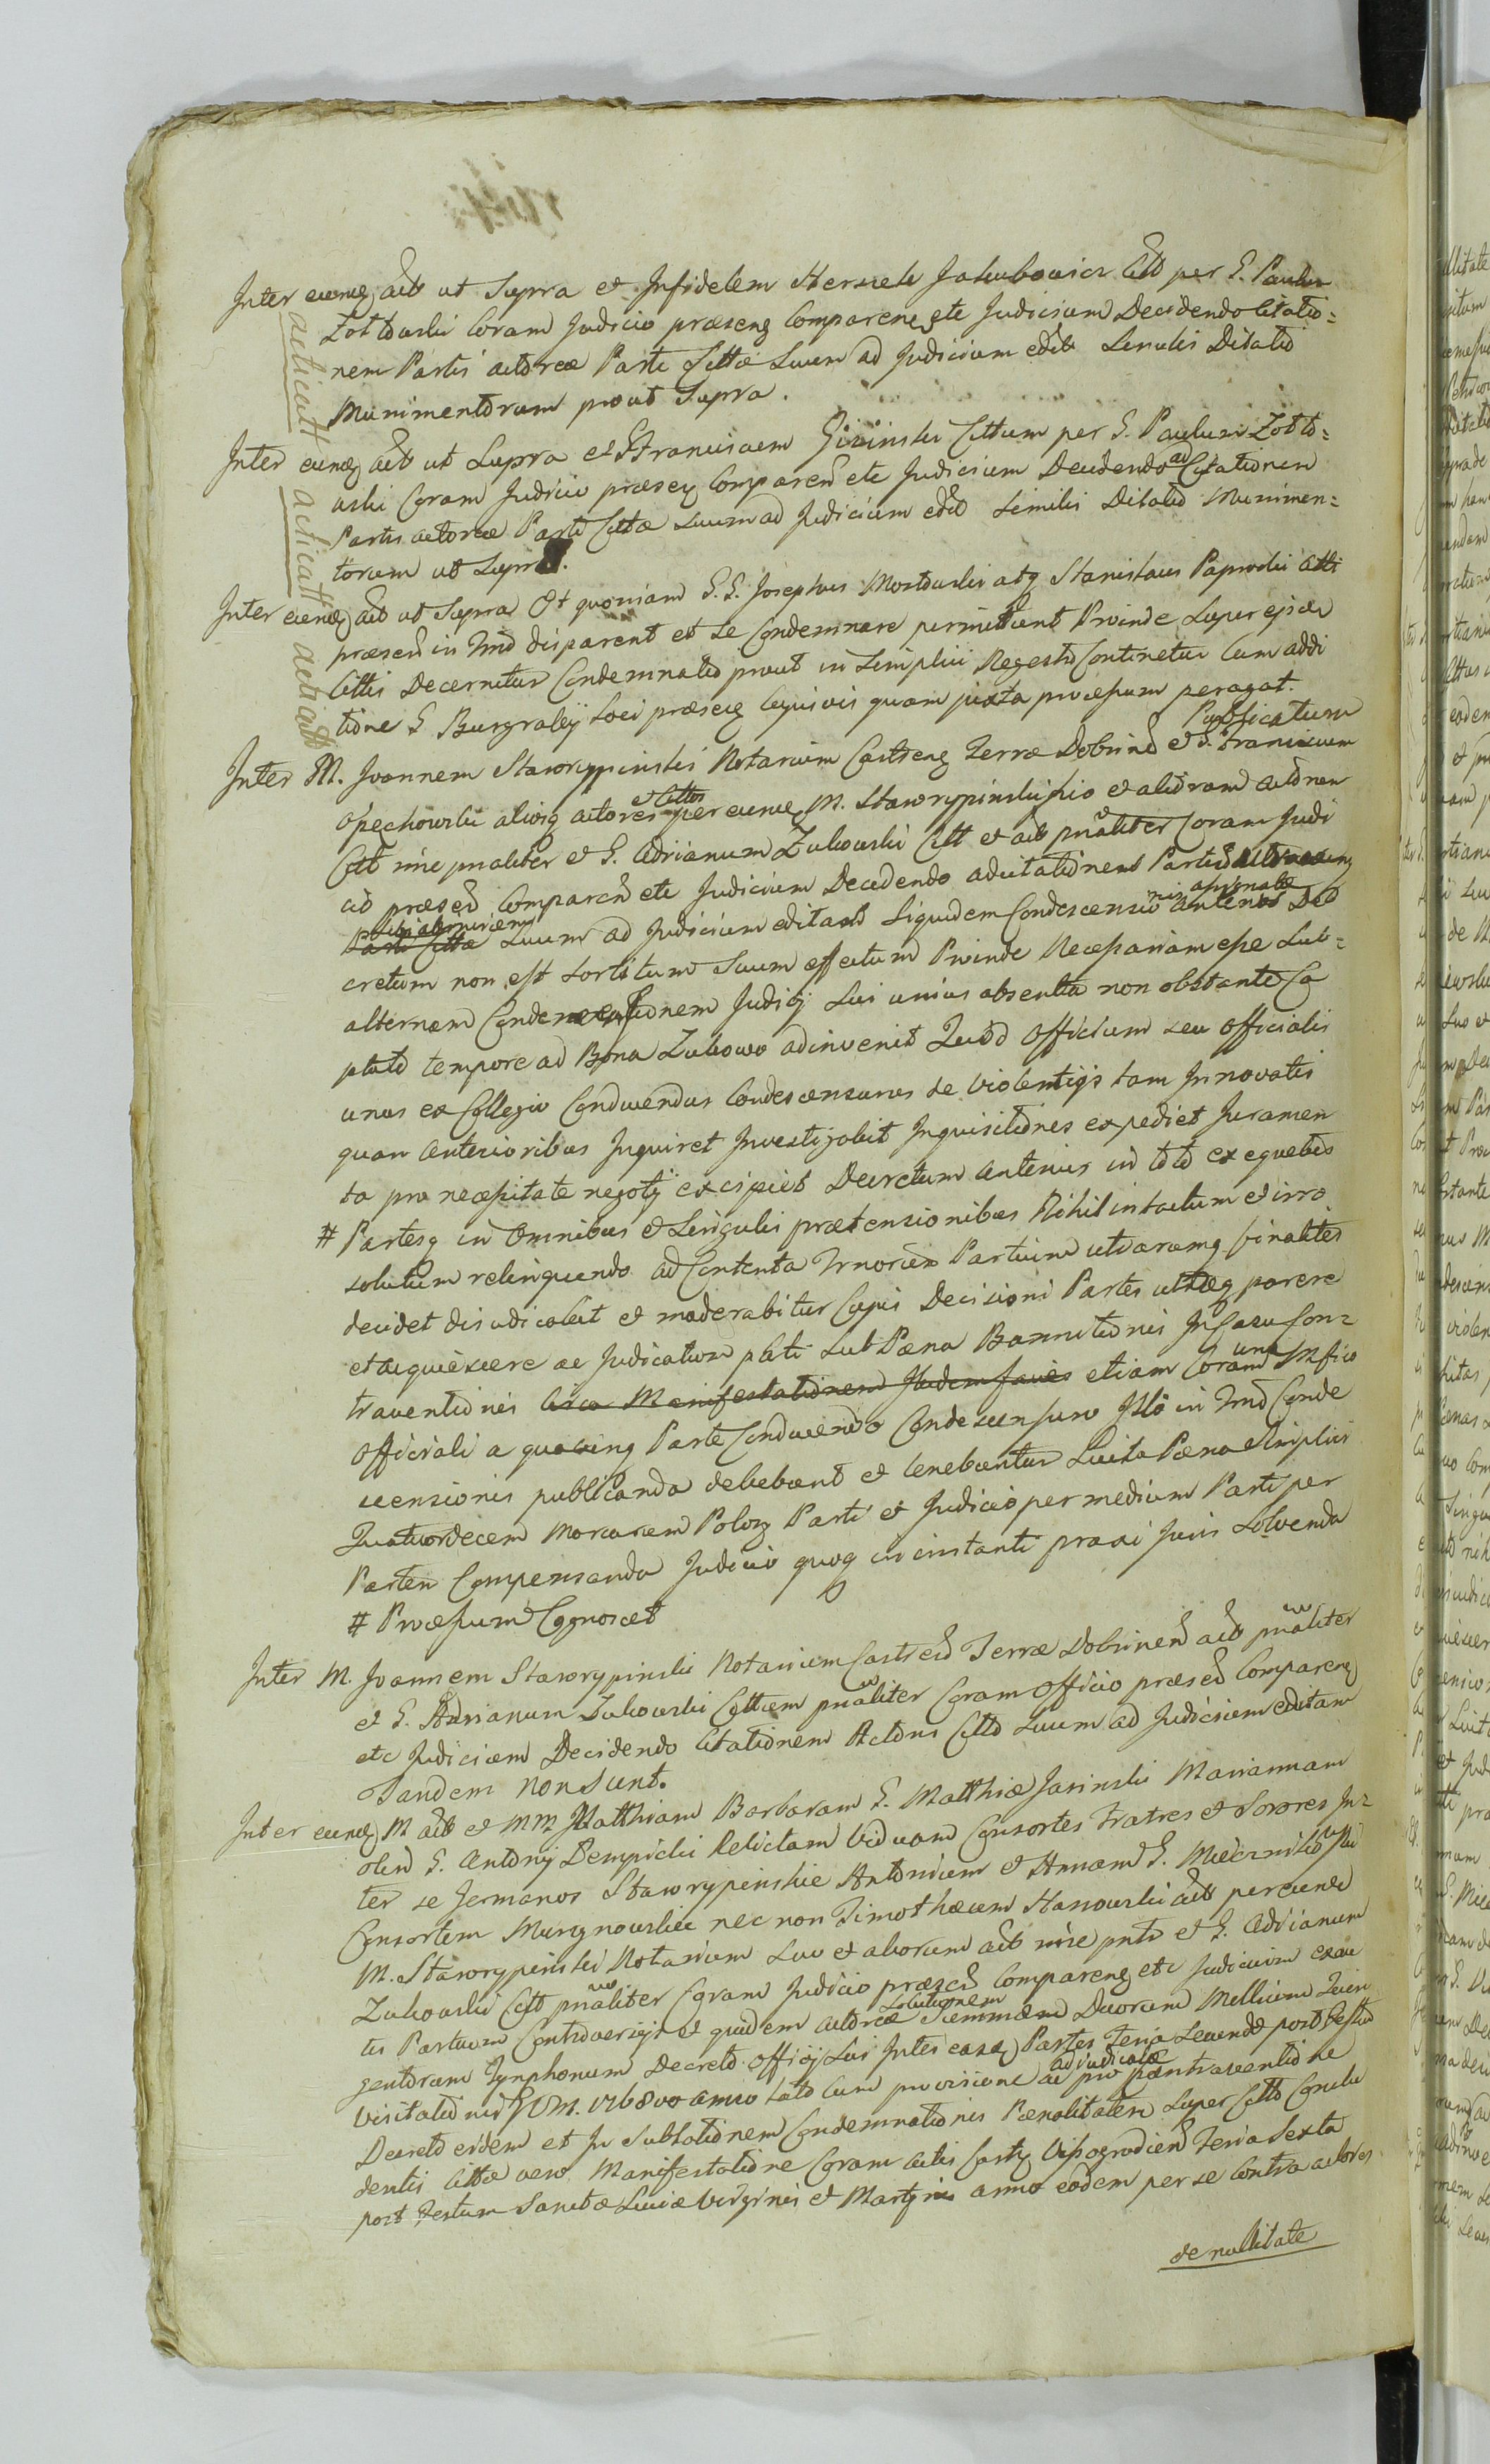 Inter eumdq actb ut Supra et Infidelem Herszek Jakubowicz Citt per G. Paulum
Zołtowski Coram Judicio praesenq Comparenq etc Judicium Decidendo Citatio=
nem Partis actorea Parti Citta suum ad Judicium editt Similis Dilatio
Munimentorum prout Supra.
Inter eumq actb ut Supra et G Franciscum Giziński Cittum per G. Paulum Zołto=
wski Coram Judicio praesenq Comparen etc Judicium Decidendo ad Citationem
Partis actoreae Parti Citta suum ad Judicium edit Similis Dilatio Munimen=
torum ut Supra.
Inter eumq actb ut Supra Et quoniam G. G. Josephus Mostowski atq Stanislaus Paprocki Citti
praesen in Tmo disparent et se Condemnare permittunt Proinde super ejsdem
Cittis Decernitur Condemnatio prout in Simplici Regestro Continetur Cum addi
tione G Burgrabij Loci praesenq Cujusvis quam juxta processum peragat.
acticatt acticatt acticatt
Publicatum
Inter M. Joannem Starorypinski Notarium Castrenq Terrae Dobrinen et G. Franciscum
Opechowski aliosq actores et Cittos per eumq M. Starorypinski suo et aliorum actorum
Citt nne pnaliter et G. Adrianum Zukowski Citt et actb pnaliter Coram Judi
cio praesen Comparen etc Judicium Decidendo ad citationem Partis
Parti Citta sibi abinvicem suum ad Judicium editam Siquidem Condescensionis affirmatae anterius De
cretum non est sortitum suum effectum Proinde Necessariam esse Sub=
alternam Condescensionem Judicij sui unius absentia non obstante Ca
ptato tempore ad Bona Zukowo adinvenit Quod Officium seu Officialis
unus ex Collegio Conducendus Condescensurus de violentijs tam Innovatis
quam anterioribus Inquiret Investigabit Inquisitiones expediet Juramen
ta pro necessitate negotij excipiet Decretum anterius in toto exequetur
# Partesq in Omnibus et Singulis praetensionibus Nihil intactum et irre
solutum relinquendo ad Contenta Trnorum Partium utrarumq finaliter
decidet disjudicabit et moderabitur Cujus Decisioni Partes utraeq parere
et acquiescere ac Judicatum pati sub Paena Bannitionis In Casu Con=
traventionis Circa Manifestationem Itidem faues etiam Coram uno Mfico
Officiali a quavis Parte Conducendo Condescensuro Isto in Tmo Conde
scensionis publicanda debebunt et tenebuntur Luita Paena Simplici
Quatuordecem Marcarum Polonq Parti et Judicio per medium Parti per
Partem Compensanda Judicio quoq in instanti praxi Juris Solvenda
# Processum Cognoscet
Inter M. Joannem Starorypinski Notarium Castren Terrae Dobrinen actb pnaliter
et G. Adrianum Zukowski Cittum pnaliter Coram Officio praesen Comparenq
etc Judicium Decidendo Citationem Actoris Citto suum ad Judicium editam
Tandem non sunt.
Inter eumq M actb et MM Matthiam Barbaram G. Matthiae Jasinski Mariannam
olim G. Antonij Dempicki Relictam Viduam Consortes Fratres et Sorores In=
ter se Germanos Starorypinskie Antonium et Annam G. Miecznikowski
Consortem Murzynowskie nec non Timothaeum Hanowski actb per eumd
M. Starorypinski Notarium suo et aliorum actb nne pnto et G. Adrianum
Zukowski Citt pnaliter Coram Judicio praesen Comparenq etc Judicium exau
tis Partium Controversijs et quidem actorea Solutionem Summam Duorum Millium Quin
gentorum Tynphonum Decreto Officij sui Inter easq Partes Feria Secunda post Festum
Visitationis BVM. 1768vo anno lato cum provisione ac pro adjudicatae Contraventione
Decreto eidem et In Sublationem Condemnationis Paenalitatem super Citto Conclu
dentis Citta vero Manifestatione Coram Actis Castq Vissogrodien Feria Sexta
post Festum Sanctae Luciae Virginis et Martyris anno eodem per se Contra actores
de nullitate